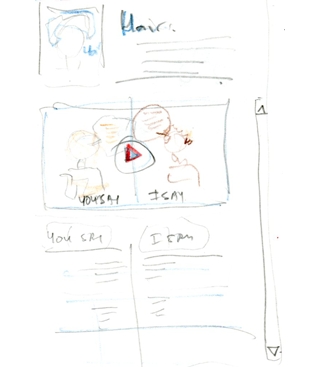 Hair
YOU SAY
I SAY
YOU SAY
I SAY